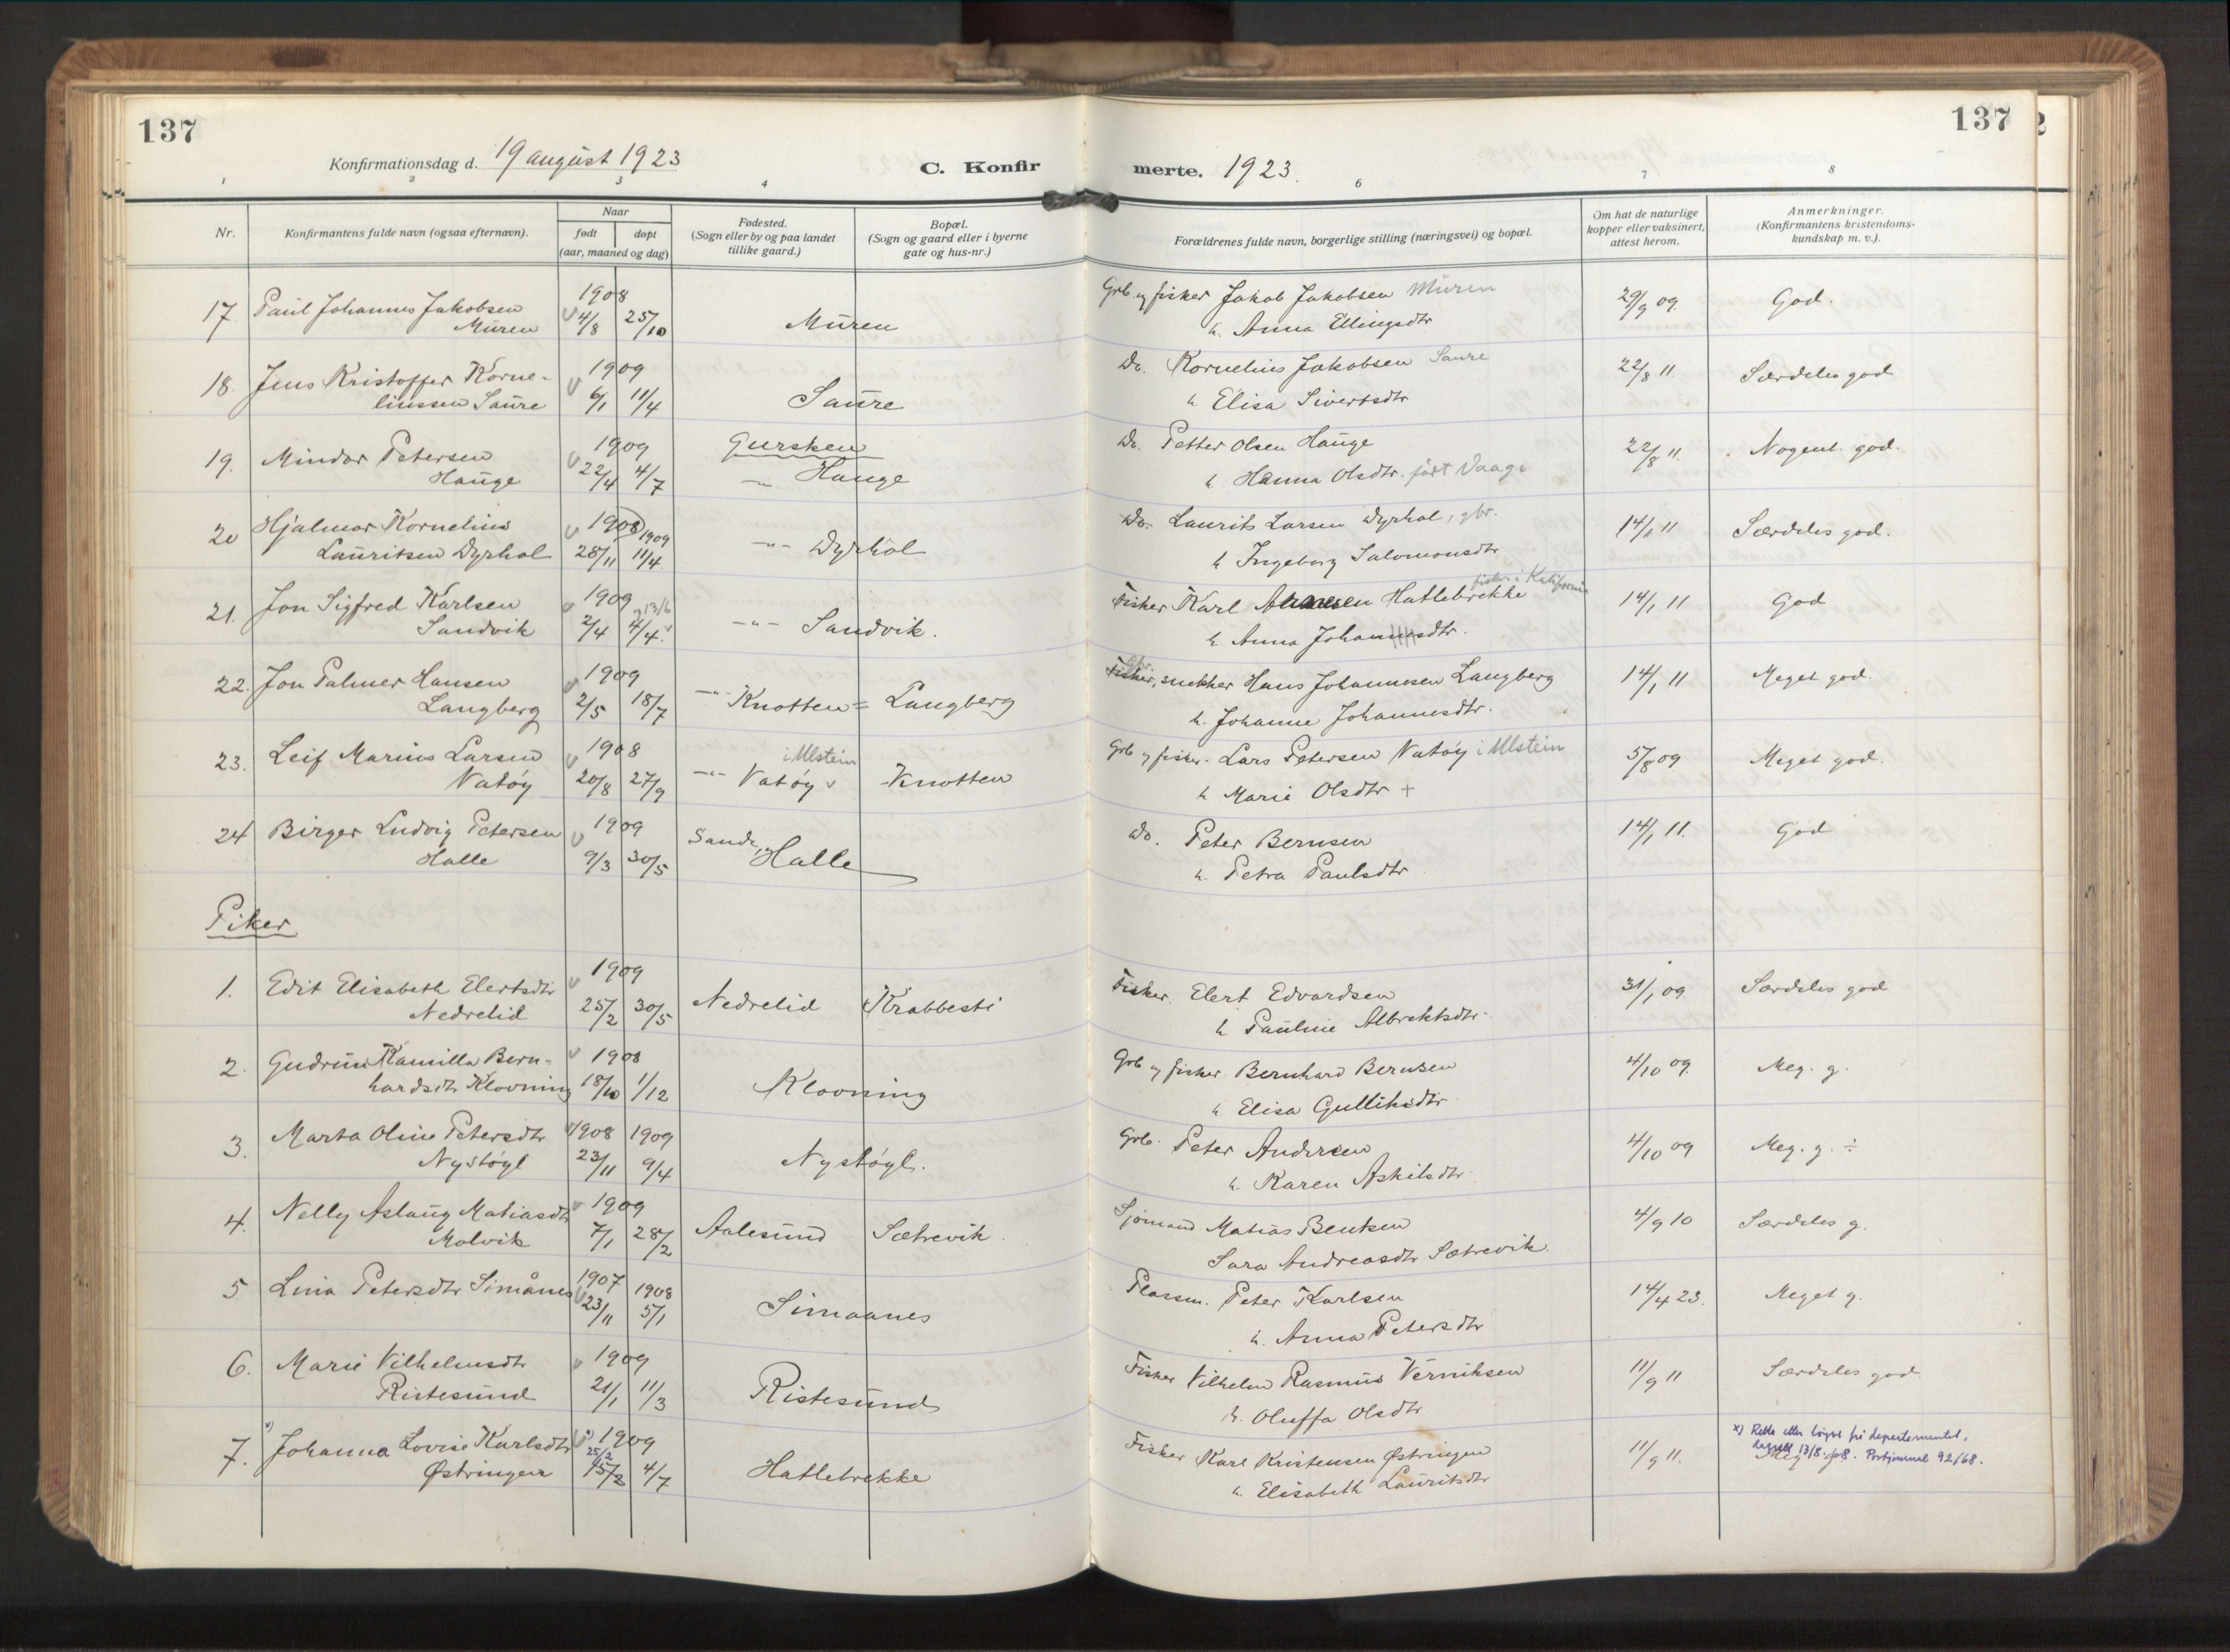 137
137
Konfirmationsdag d. 19 august 1923
C. Konfirmerte. 1923.
1 2 3 4 6 7 8
Nr.
Konfirmantens fulde navn (ogsaa efternavn).
Naar
født døpt
(aar, maaned og dag)
Fødested.
(Sogn eller by og paa landet
tillike gaard.)
Bopæl.
(Sogn og gaard eller i byerne
gate og hus-nr.)
Forældrenes fulde navn, borgerlige stilling (næringsvei) og bopæl.
Om hat de naturlige
kopper eller vaksinert,
attest herom.
Anmerkninger.
(Konfirmantens kristendoms-
kundskap m. v.).
17. Paul Johannes Jakobsen 1908 Grb. og fisker Jakob Jakobsen Muren 29/9 09. God.
Muren 4/8 25/10 Muren h. Anna Ellingsdtr
18. Jens Kristoffer Korne- 1909 Do. Kornelius Jakobsen Saure 22/8 11. Særdeles god
liussen Saure 6/1 11/4 Saure h. Elisa Sivertsdtr
19. Mindor Petersen 1909 Gursken Do. Petter Olsen Hauge 22/8 11. Noget god.
Hauge 22/4 4/7 -"- Hauge h. Hanna Olsdtr. født Vaage
20 Hjalmar Kornelius 1908 1909 Do. Laurits Larsen Dyrhol, gbr. 14/1 11 Særdeles god.
Lauritsen Dyrhol 28/11 11/4. -"- Dyrhol h Ingeborg Salomonsdtr
fisker i Kalifornia
21. Jon Sigfred Karlsen 1909 13/6 Fisker Karl Hatlebrekke 14/1 11 God
Sandvik 2/4 4/4. -"- Sandvik. h. Anna Johannesdtr.
22. Jon Palmer Hansen 1909 Fisker, snekker Hans Johannesen Langberg 14/1 11 Meget god.
Langberg 2/5 18/7 -"- Knotten = Langberg h. Johanne Johannesdtr.
23. Leif Marius Larsen 1908 i Ulstein Grb og fisker. Lars Petersen Vatøy i Ulstein 5/8 09. Meget god.
Vatøy 20/8 27/9 -"- Vatøy Knotten h Marie Olsdtr +
24 Birger Ludvig Petersen 1909 Sande, Do. Peter Bernsen 14/1 11. God
Halle 9/3 30/5 Halle h. Petra Paulsdtr
Piker
1. Edit Elisabeth Elertsdtr 1909 Fisker. Elert Edvardsen 31/1 09 Særdeles god
Nedrelid 25/2 30/5 Nedrelid Krabbesti h Pauline Albrektsdtr
2. Gudrun Kamilla Bern- 1908 Grb og fisker. Bernhard Bernsen 4/10 09. Meg. g.
hardsdtr Klovning 18/10 1/12 Klovning h Elisa Gulliksdtr
3. Marta Oline Petersdtr 1908 1909 Grb. Peter Andersen 4/10 09 Meg. g. ÷
Nystøyl 23/11 9/4 Nystøyl. h Karen Askilsdtr
4. Nelly Aslaug Matiasdtr 1909 Sjømand Matias Bentsen 4/9 10 Særdeles g.
Molvik 7/1 28/2 Aalesund Sætrevik. Sara Andreasdtr Sætrevik.
5 Lina Petersdtr Simånes 1907 1908 Plassm. Peter Karlsen 14/4 23. Meget g.
23/11 5/1 Simaanes h. Anna Petersdtr
6. Marie Vilhelmsdtr 1909 Fisker Vilhelm Rasmus Verniksen 11/9 11 Særdeles god.
Ristesund 21/1 11/3 Ristesund h. Oluffa Olsdtr
7. x) Johanna Lovise Karlsdtr x) 1909 Fisker Karl Kristensen Østringen 11/9 11. x) Retta etter løyve frå departementet,
25/2
Østringen 15/2 4/7 Hatlebrekke h. Elisabeth Lauritsdtr Meg
dagsett 13/8-68. Postjournal 92/68.